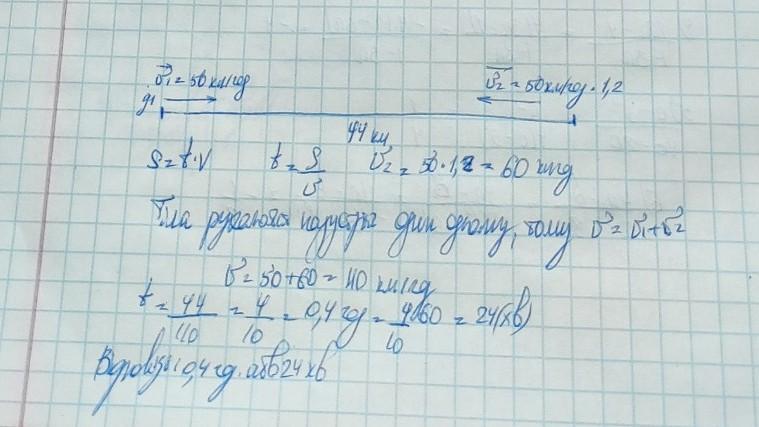 v₁ = 50 км/год v₂ = 50 км/год · 1,2
44 км
S = t·v t = S/v v₂ = 50·1,2 = 60 км/год
Тіла рухаються назустріч один одному, тому v = v₁ + v₂
v = 50 + 60 = 110 км/год
t = 44/110 = 4/10 = 0,4 год = 4·60/10 = 24 (хв)
Відповідь: 0,4 год. або 24 хв